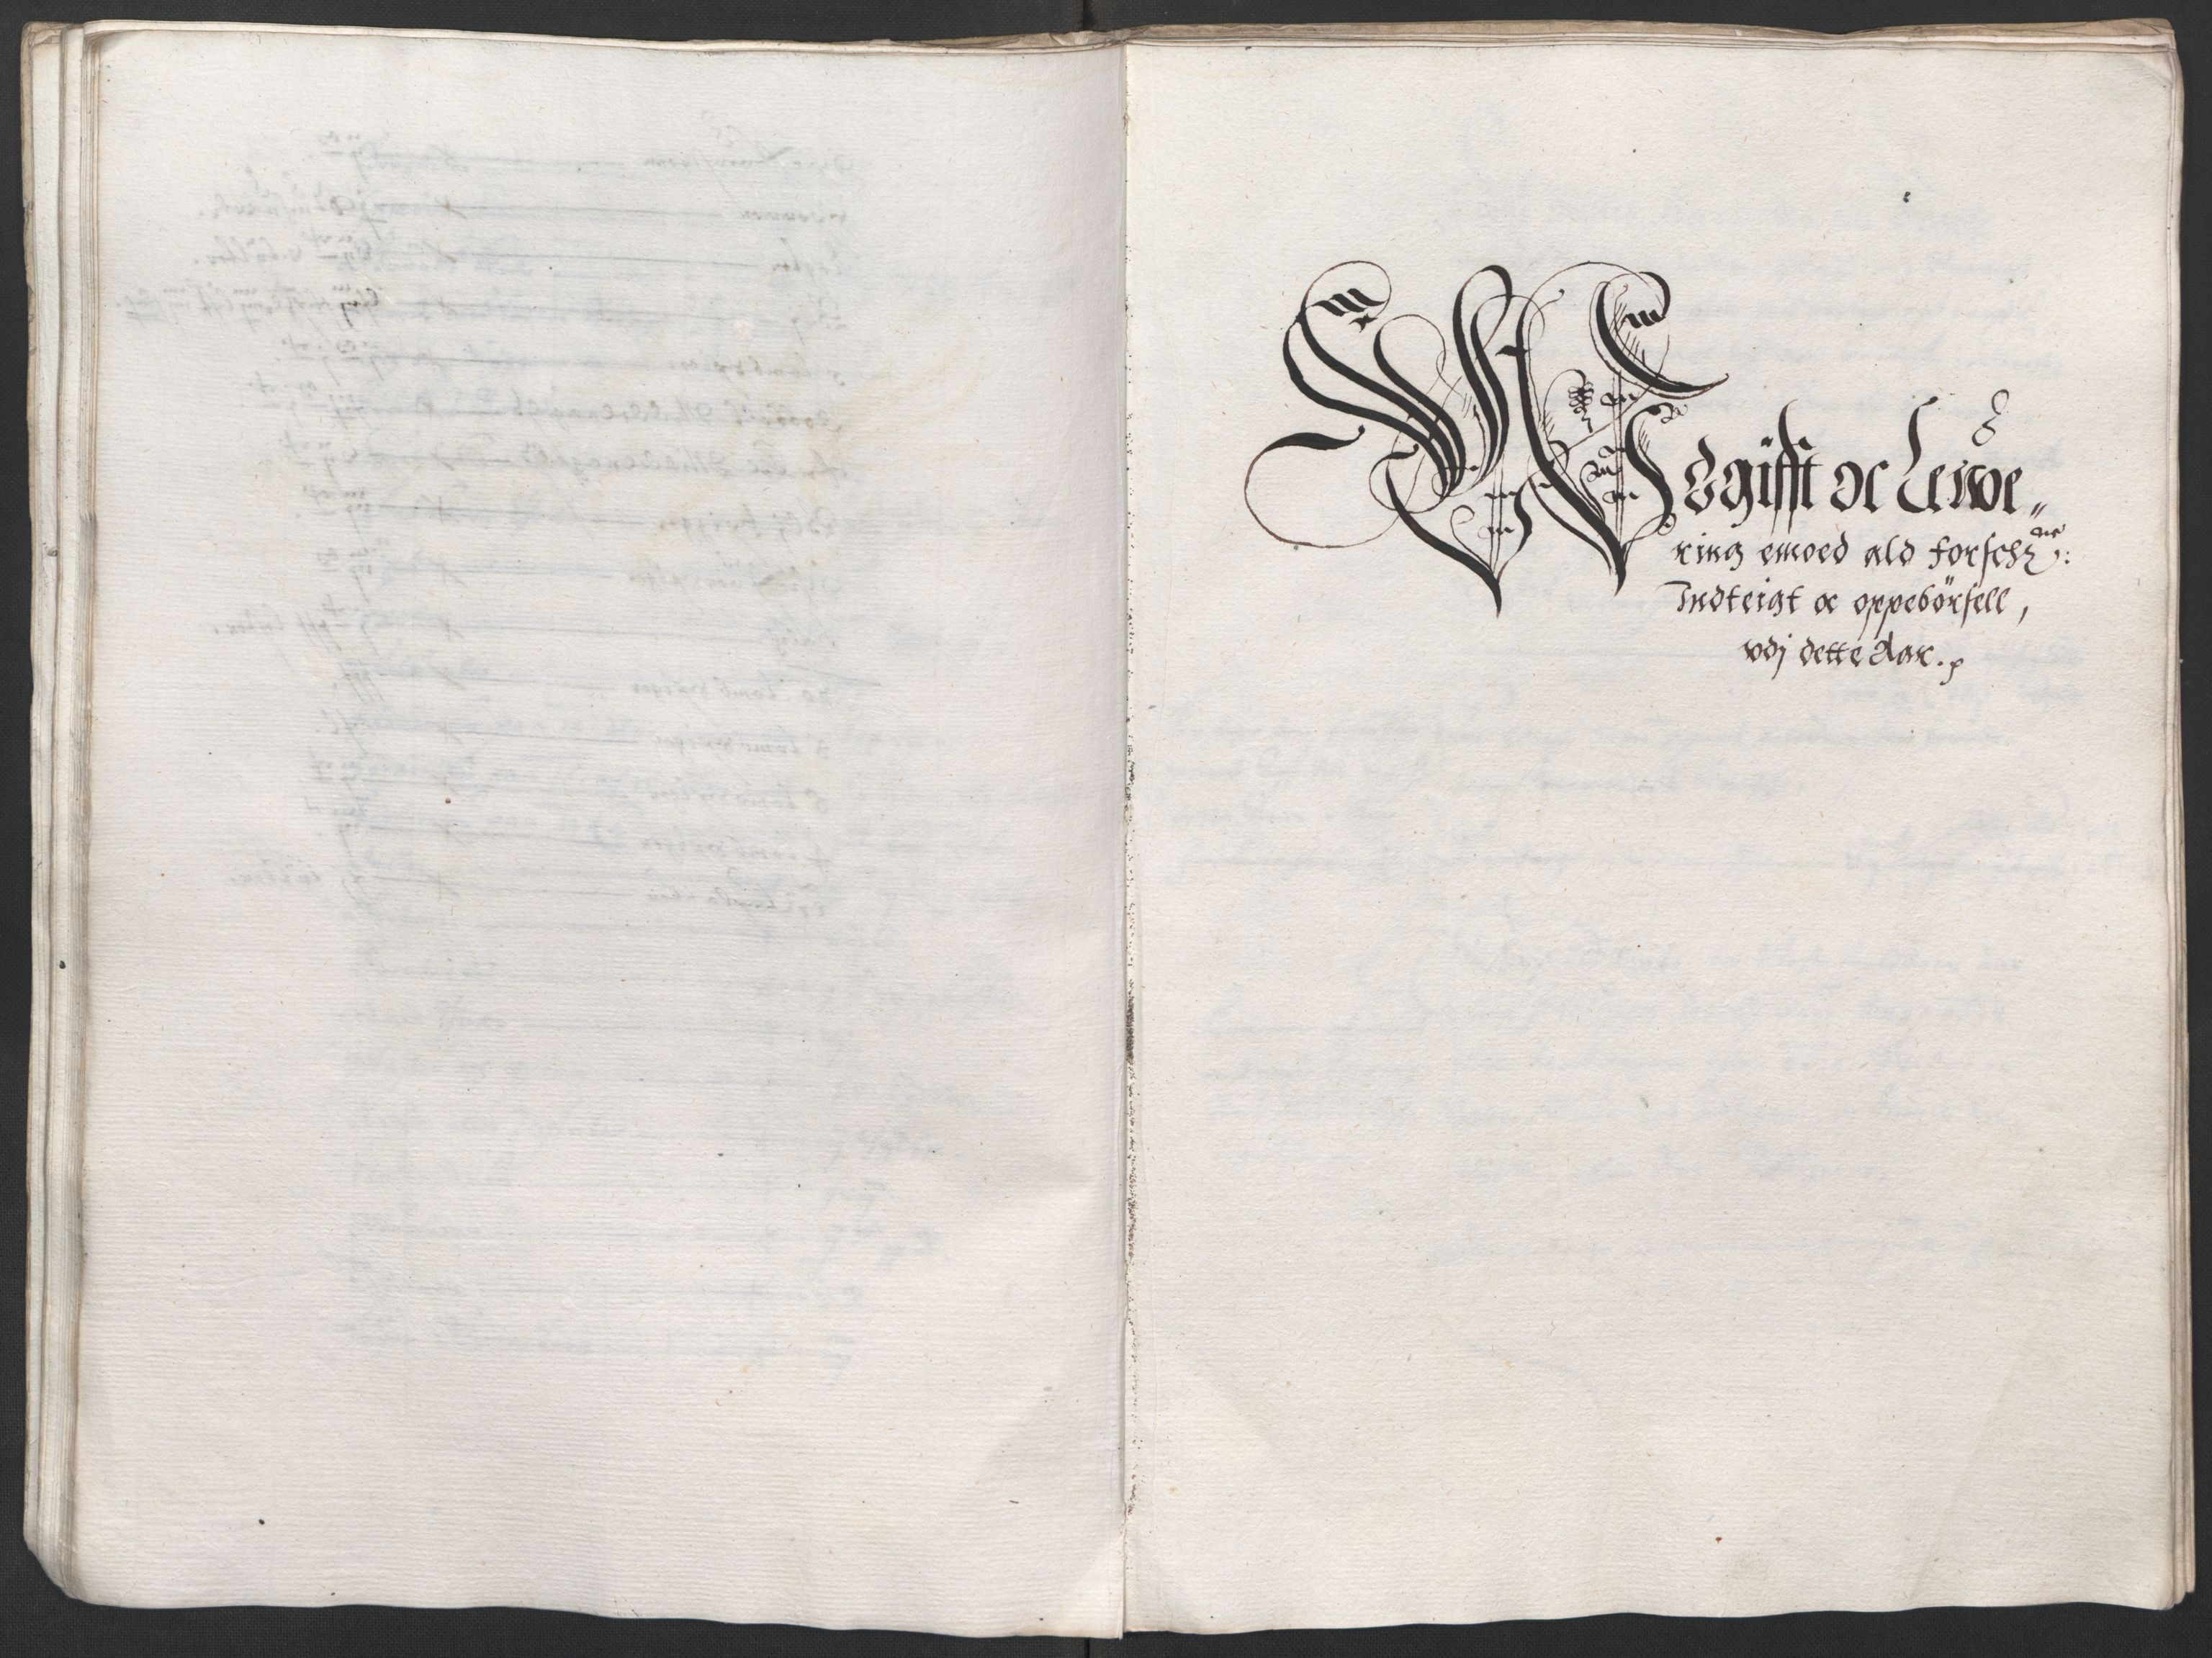 Wdgifft oc Leffwe„
ring emoed ald forschne:
Indteigt oc oppebörsell,
vdj dette Aar.